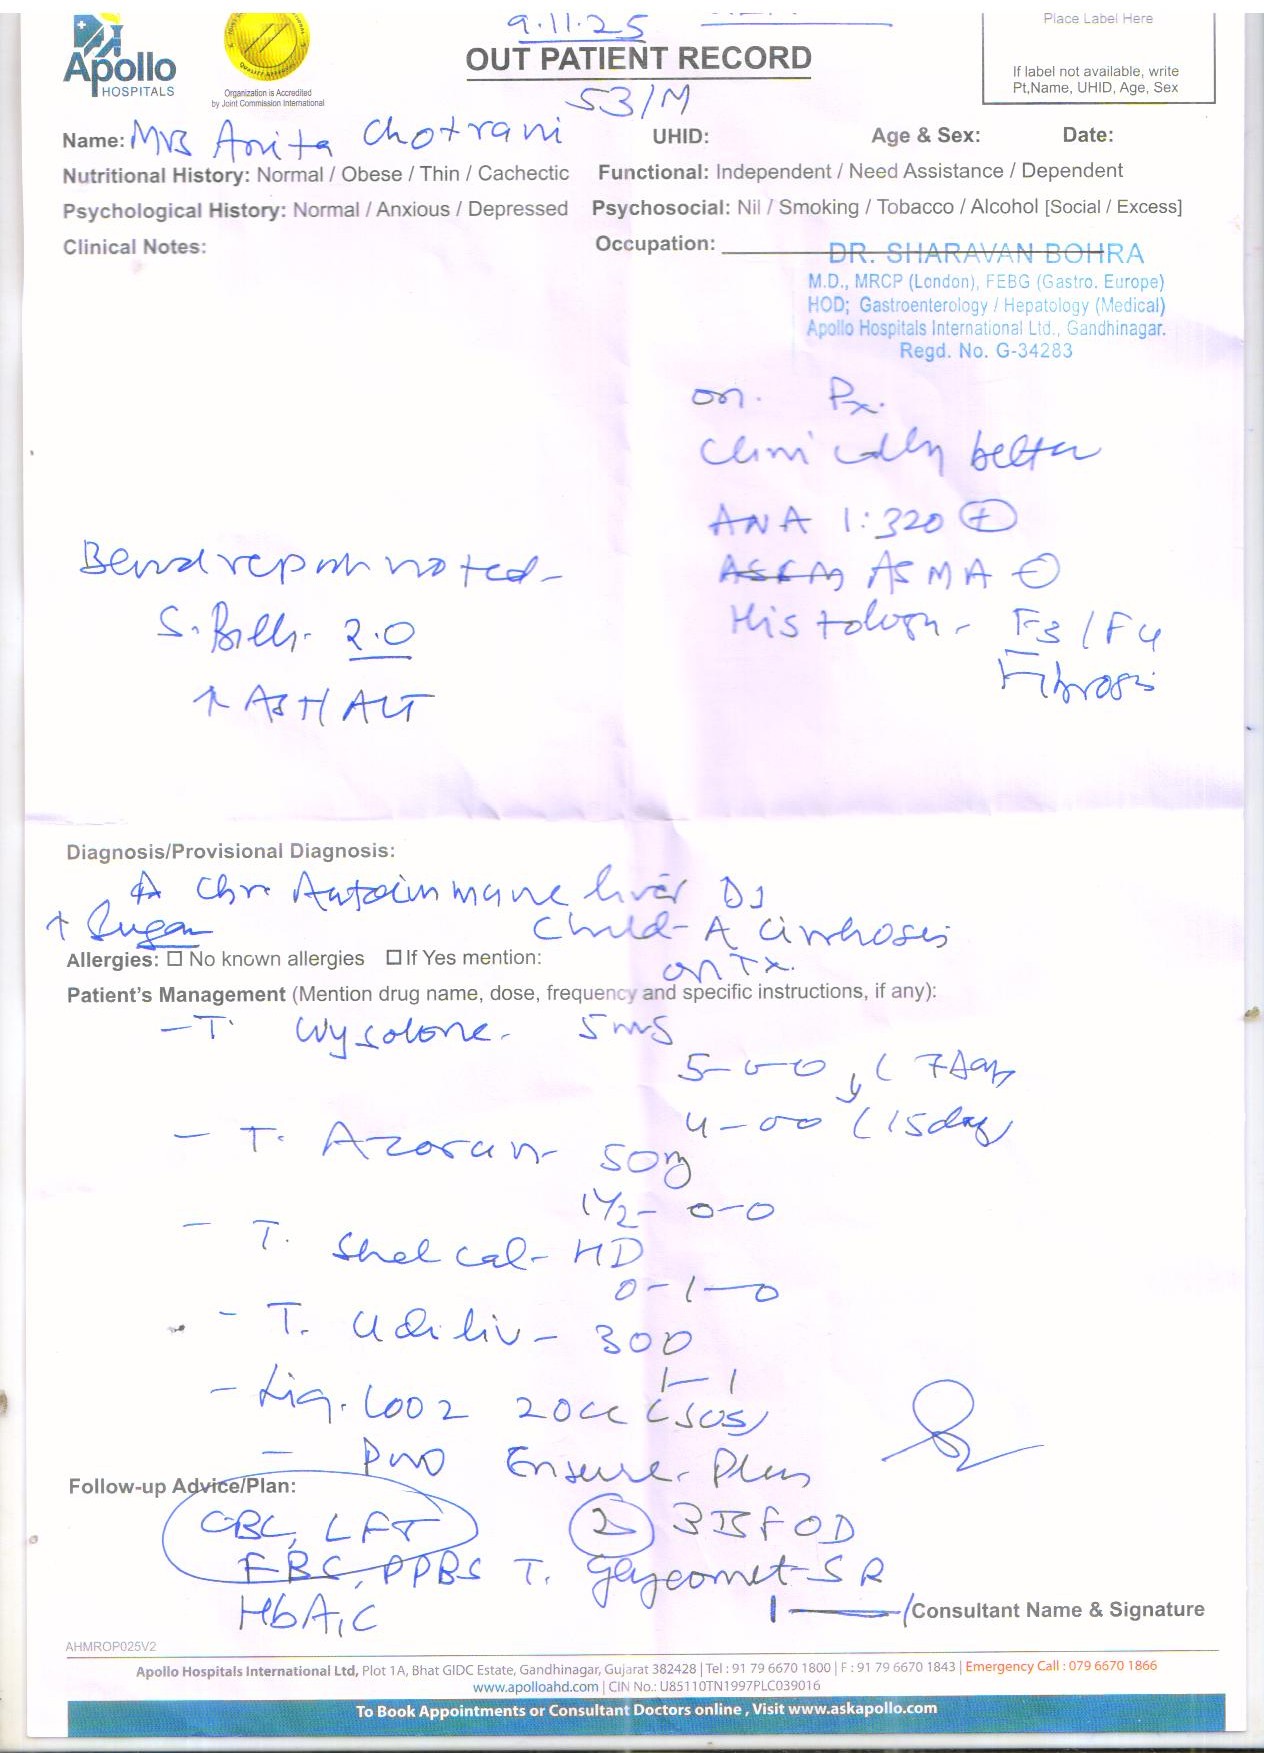 9.11.25
Apollo
HOSPITALS
Organization is Accredited
by Joint Commission International
OUT PATIENT RECORD
Place Label Here
If label not available, write
Pt,Name, UHID, Age, Sex
53/M
Name: Mrs Anita Chotrani UHID: Age & Sex: Date:
Nutritional History: Normal / Obese / Thin / Cachectic Functional: Independent / Need Assistance / Dependent
Psychological History: Normal / Anxious / Depressed Psychosocial: Nil / Smoking / Tobacco / Alcohol [Social / Excess]
Clinical Notes: Occupation:
DR. SHARAVAN BOHRA
M.D., MRCP (London), FEBG (Gastro. Europe)
HOD; Gastroenterology / Hepatology (Medical)
Apollo Hospitals International Ltd., Gandhinagar.
Regd. No. G-34283
on. Rx.
Clinically better
ANA 1:320 +
ASMA -
Histology - F3/F4
Fibrosis
noted -
S. Bili - 2.0
↑ AST/ALT
Diagnosis/Provisional Diagnosis:
Chr Autoimmune liver DJ
↑ Sugar Child-A Cirrhosis
Allergies: ☐ No known allergies ☐ If Yes mention:
on Tx.
Patient's Management (Mention drug name, dose, frequency and specific instructions, if any):
- T. Wysolone - 5mg
5-0-0 (7day
4-00 (15day
- T. Azoran - 50mg
1 1/2 - 0-0
- T. Shelcal - HD
0-1-0
- T. Udiliv - 300
1-1
- Liq. Looz 20cc (SOS)
- Ensure Plus
Follow-up Advice/Plan:
CBC, LFT
FBC, PPBS
HbA1C
2 3
T. Glycomet-SR
1 ——— 1
Consultant Name & Signature
AHMROP025V2
Apollo Hospitals International Ltd, Plot 1A, Bhat GIDC Estate, Gandhinagar, Gujarat 382428 | Tel : 91 79 6670 1800 | F : 91 79 6670 1843 | Emergency Call : 079 6670 1866
www.apolloahd.com | CIN No.: U85110TN1997PLC039016
To Book Appointments or Consultant Doctors online , Visit www.askapollo.com